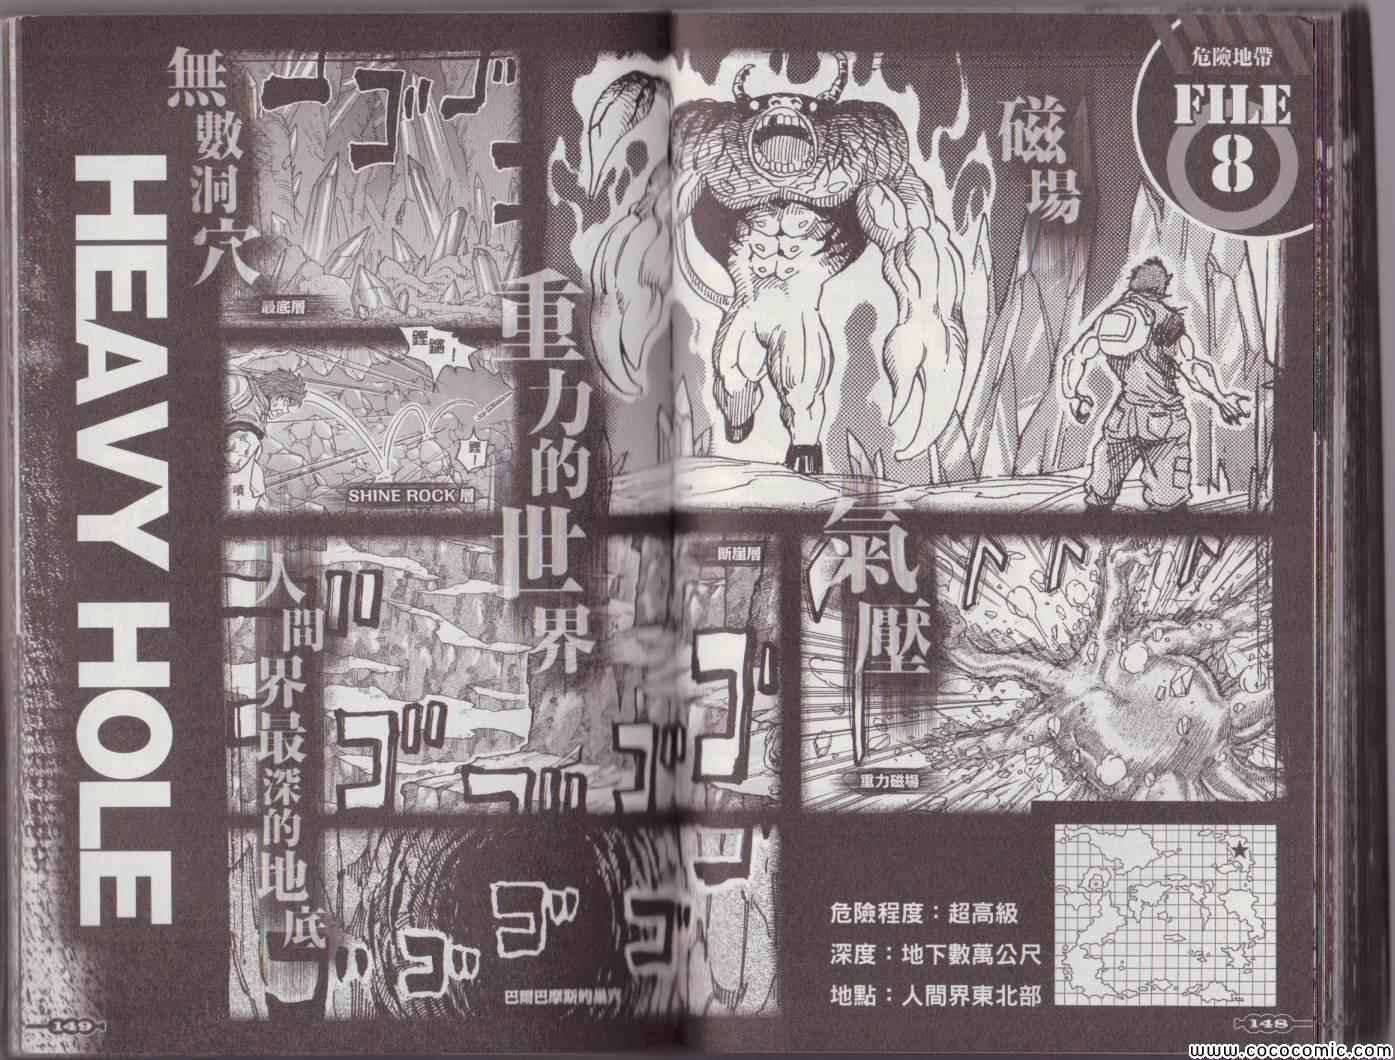 危險地帶
FILE
8
磁場
氣壓
重力的世界
無數洞穴
人間界最深的地底
HEAVY HOLE
最底層
鏗鏘！
SHINE ROCK層
斷崖層
重力磁場
巴爾巴摩斯的巢穴
危險程度：超高級
深度：地下數萬公尺
地點：人間界東北部
149
148
www.cococomic.com